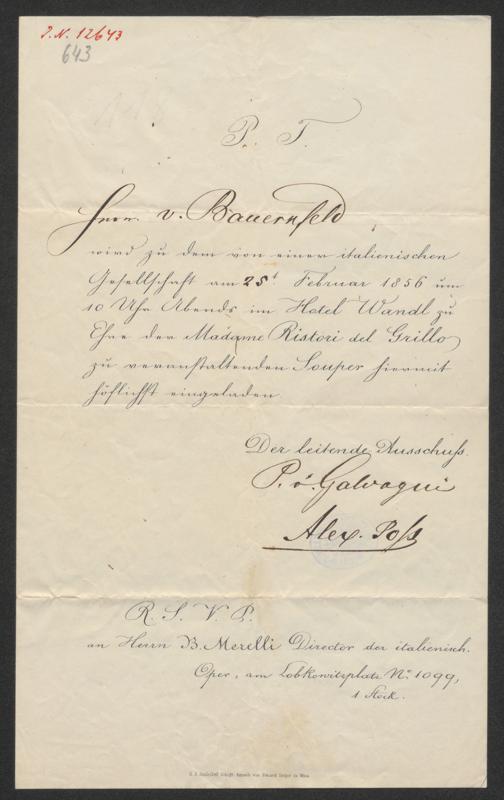 J. N. 12643
643
P. T.
Herrn v. Bauernfeld
wird zu dem von einer italienischen
Gesellschaft am 25t Februar 1856 um
10 Uhr Abends im Hotel Wandl zu
Ehre der Madame Ristori del Grillo
zu veranstaltenden Souper hiermit
höflichst eingeladen
Der leitende Ausschuß.
P. v. Galvagni
Alex. Poß
R. S. V. P.
an Herrn B. Merelli Director der italienisch.
Oper, am Lobkowitzplatz No. 1099,
1 Stock.